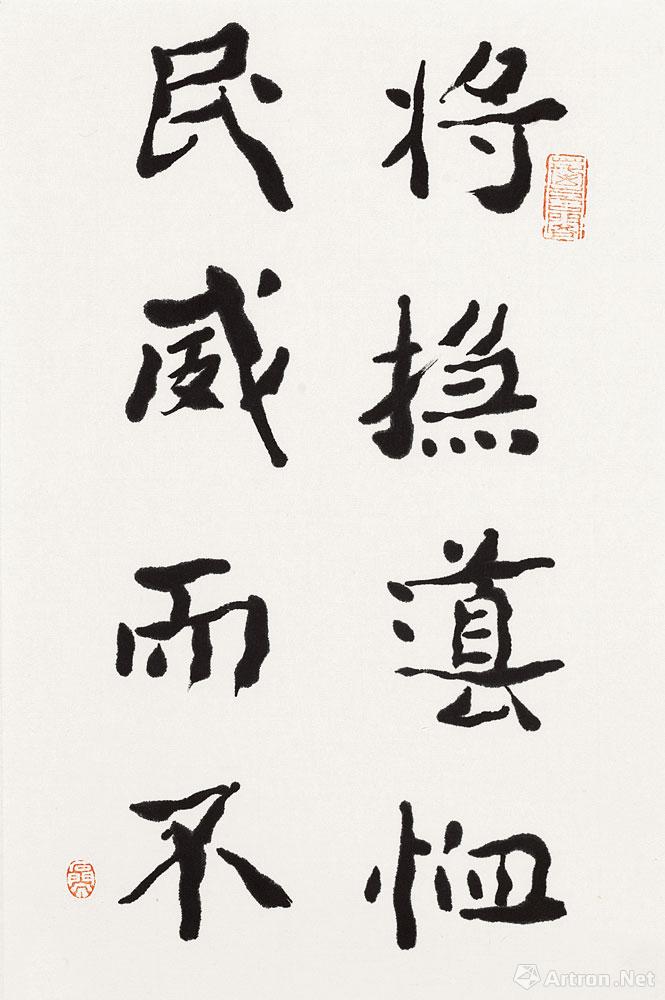 将撫滇恤
民威而不
Artron.Net